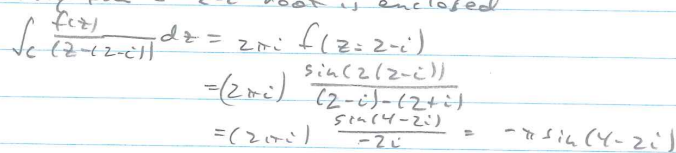 root is enclosed
∫c f(z)/(z-(2-i)) dz = 2πi f(z=2-i)
=(2πi) sin(2(2-i))/((2-i)-(2+i))
=(2πi) sin(4-2i)/(-2i) = -π sin(4-2i)